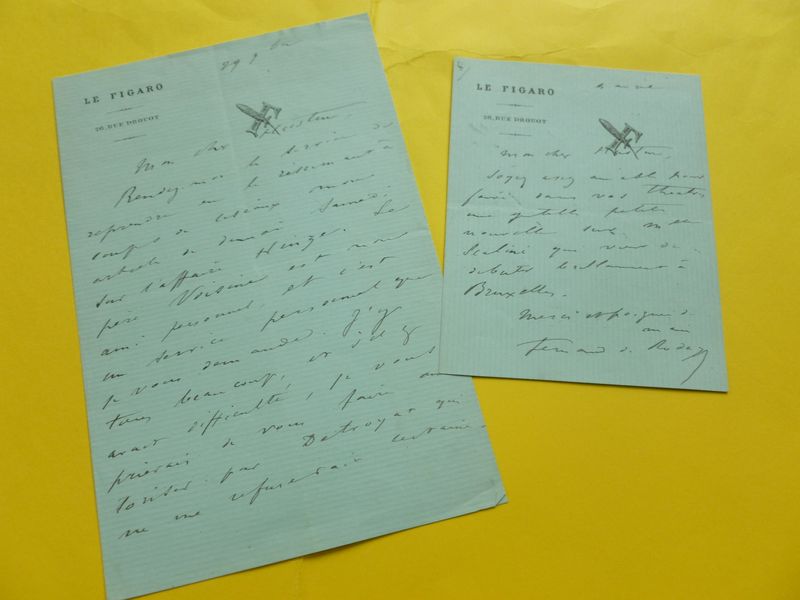 LE FIGARO
26, RUE DROUOT
F
Mon cher
Rendez-moi le service de
reprendre en le résumant à
coups de ciseaux mon
article de demain Samedi
sur l'affaire Hinze. Le
père Voisine est mon
ami personnel, et c'est
un service personnel que
je vous demande. J'y
tiens beaucoup, et s'il y
avait difficulté, je vous
prierais de vous faire au
toriser par Détroyat qui
ne me refuserait certaine-
LE FIGARO
26, RUE DROUOT
F
Mon cher
Soyez assez aimable pour
faire dans vos théâtres
une gentille petite
nouvelle sur Mlle
qui vient de
débuter brillamment à
Bruxelles.
Merci et poignée de
main
Fernand de Rodays